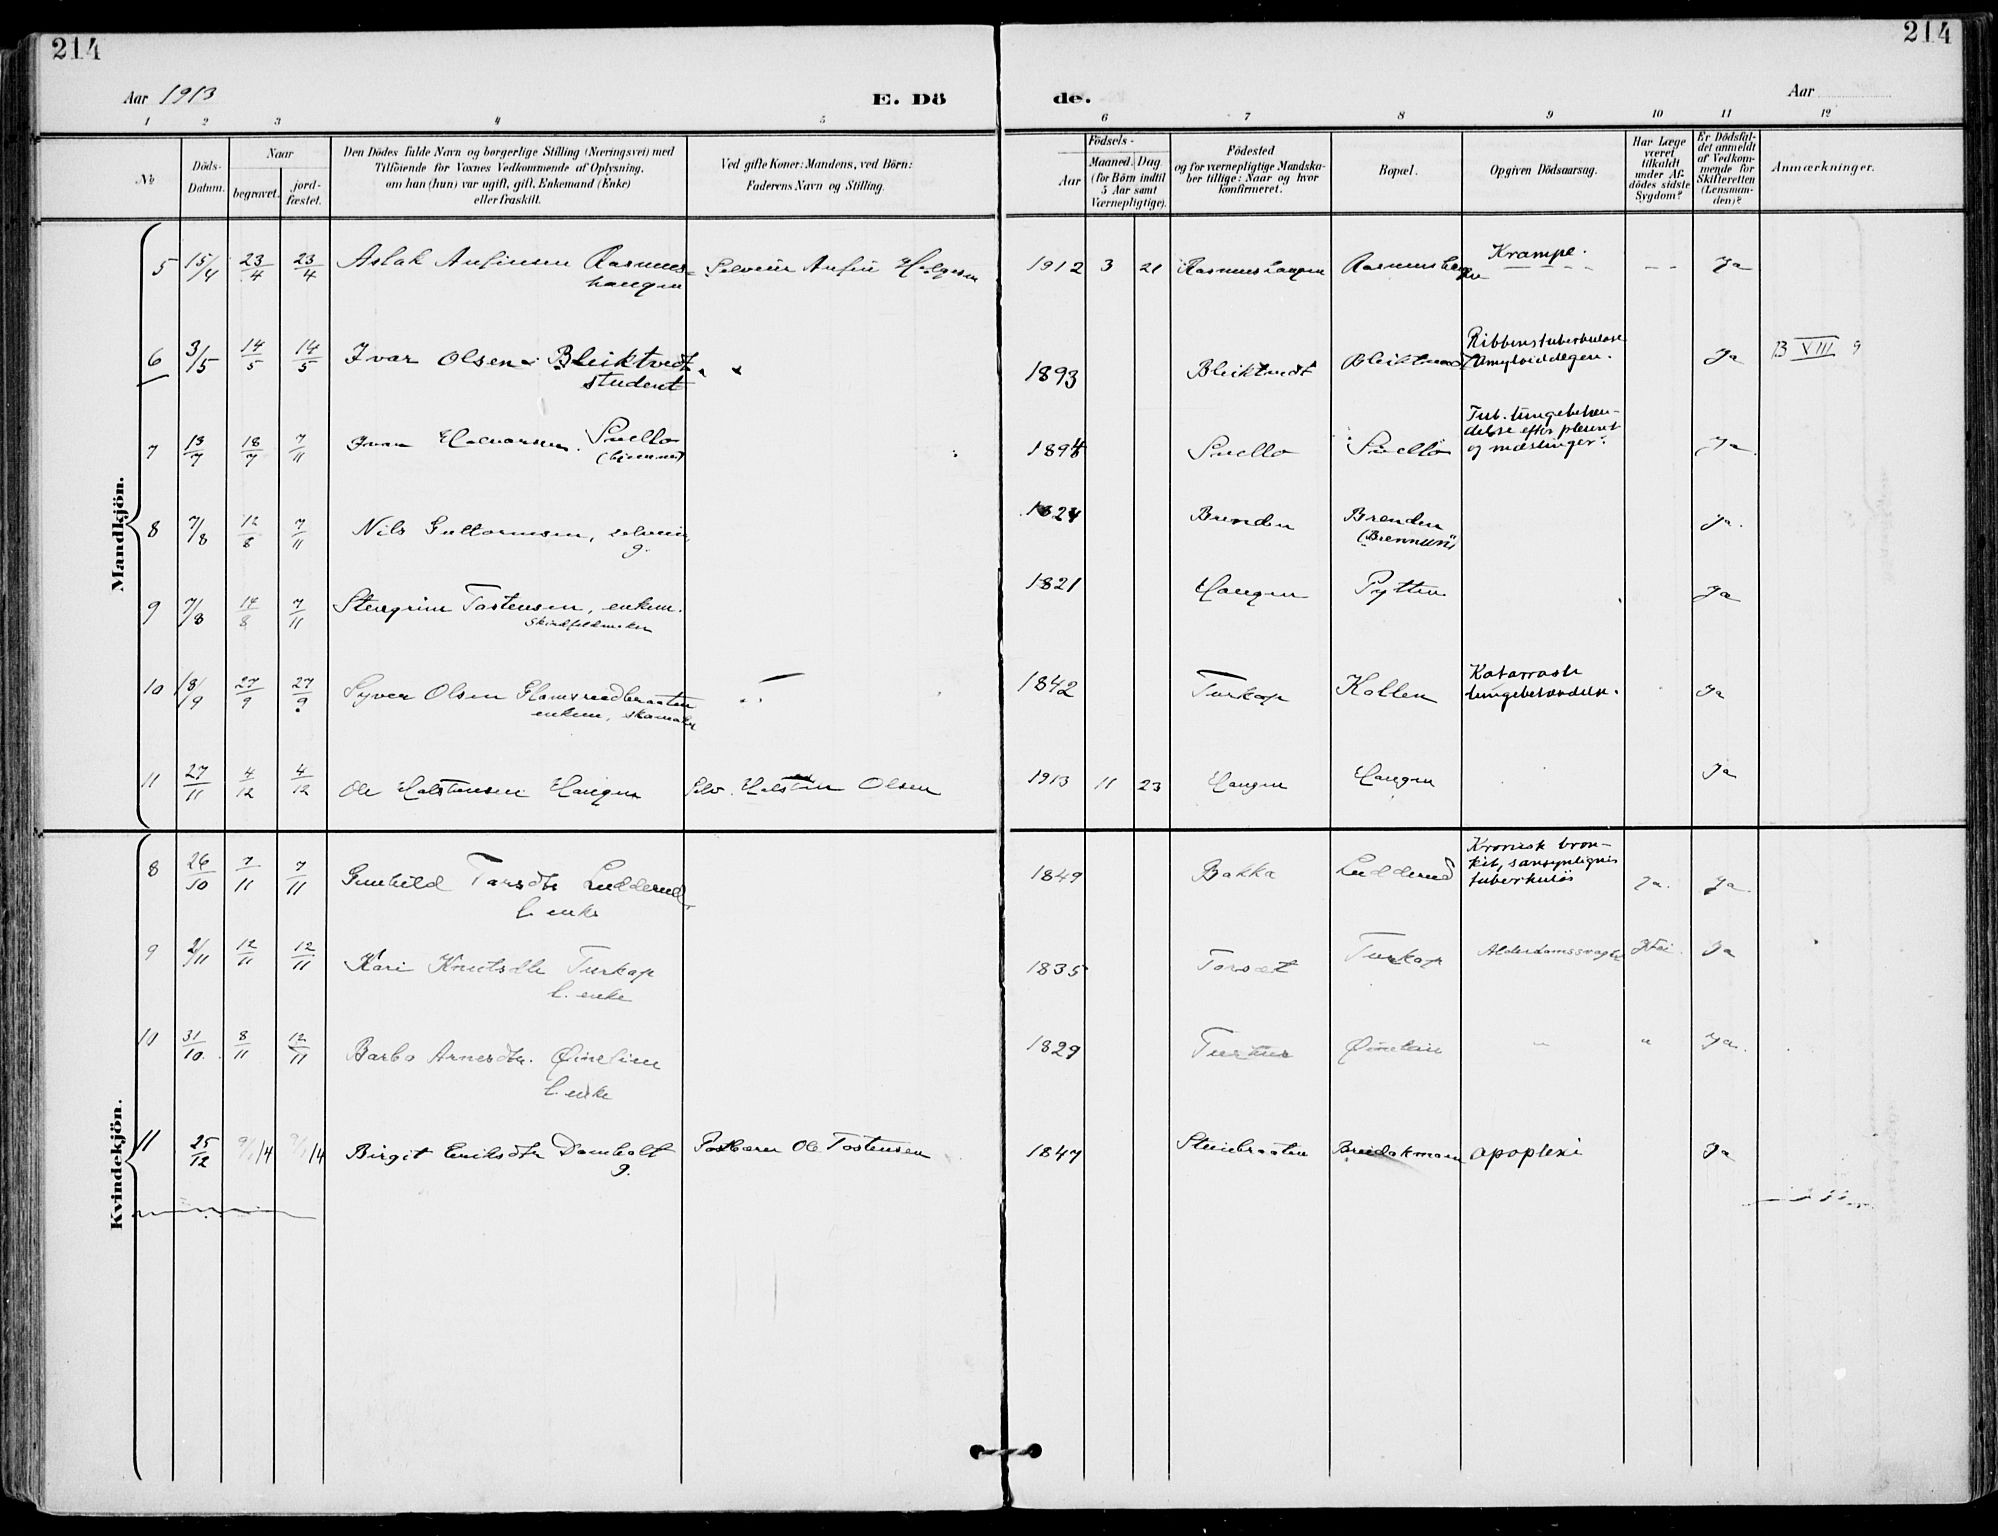 214
214
Aar 1913
E. Dö
de.
Aar
1 2 3 4 5 6 7 8 9 10 11 12
№
Döds-
Datum.
Naar
begravet.
jord-
fæstet.
Den Dödes fulde Navn og borgerlige Stilling (Næringsvei) med
Tilföiende for Voxnes Vedkommende af Oplysning,
om han (hun) var ugift, gift, Enkemand (Enke)
eller fraskilt.
Ved gifte Koner: Mandens, ved Börn:
Faderens Navn og Stilling.
Födsels-
Aar
Maaned. Dag
(for Börn indtil
5 Aar samt
Værnepligtige).
Födested
og for værnepligtige Mandska-
ber tillige: Naar og hvor
konfirmeret.
Bopæl.
Opgiven Dödsaarsag.
Har Læge
været
tilkaldt
under Af-
dödes sidste
Sygdom?
Er Dödsfal-
det anmeldt
af Vedkom-
mende for
Skifteretten
(Lensman-
den)?
Anmærkninger.
Mandkjön.
5 15/4 23/4 23/4 Aslak Anfinsen Rasmus-
haugen
Selveier Anfin Helgesen 1912 3 21 Rasmushaugen Rasmushaugen Krampe. Ja
6 3/5 14/5 14/5 Ivar Olsen Bleiktvedt
student
1893 Bleiktvedt Bleiktvedt Ribbenstuberkulose
Amyloiddegen. Ja B VIII 9
7 13/7 18/7 7/11 Ivar Halvorsen
(hjemme)
Tub. lungebeten-
delse efter pleurit
og mæslinger. Ja
8 7/8 12/8 7/11 Nils Guttormsen, selveier
g.
Brenden Brenden
(Brennun) ja.
9 7/8 14/8 7/11 Stengrim Tostensen, enkem.
1821 Haugen Pytten Ja
10 18/9 27/9 27/9 Syver Olsen Glamsrudbraaten
enkem, skomaker
1842 Turkop Kollen Katarralsk
lungebetændelse. Ja
11 27/11 4/12 4/12 Ole Halstensen Haugen Selv. Halsten Olsen 1913 11 23 Haugen Haugen Ja
Kvindekjön.
8 26/10 7/11 7/11 Gunhild Larsdtr Ludderud
l. enke
1849 Bakka Ludderud Kronisk bron-
kit, sansynligvis
tuberkuløs ja. Ja
9 2/11 12/11 12/11 Kari Knutsdtr Turkop
l. enke
1835 Torsæt Turkop Alderdomssvaghed Nei. Ja
10 31/10 8/11 12/11 Barbo Arnesdtr.
l. enke
1829 " " Ja.
11 25/12 9/1 14 9/1 14 Birgit Eriksdtr Domholt
g.
Ole Tostensen 1847 Steinbraaten apoplexi Ja